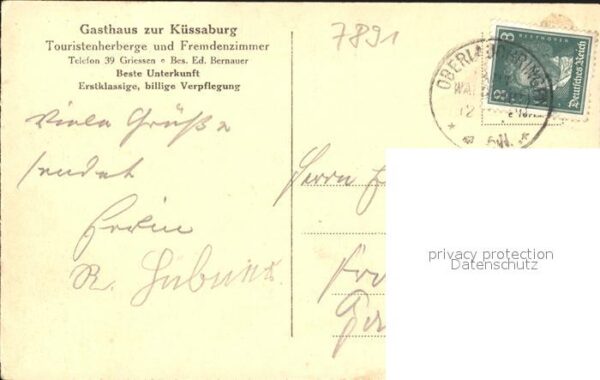 Gasthaus zur Küssaburg
Touristenherberge und Fremdenzimmer
Telefon 39 Griessen • Bes. Ed. Bernauer
Beste Unterkunft
Erstklassige, billige Verpflegung
7891
BEETHOVEN
8 8
Deutsches Reich
OBERLAUCHRINGEN
Viele Grüße
sendet
Herrn
privacy protection
Datenschutz